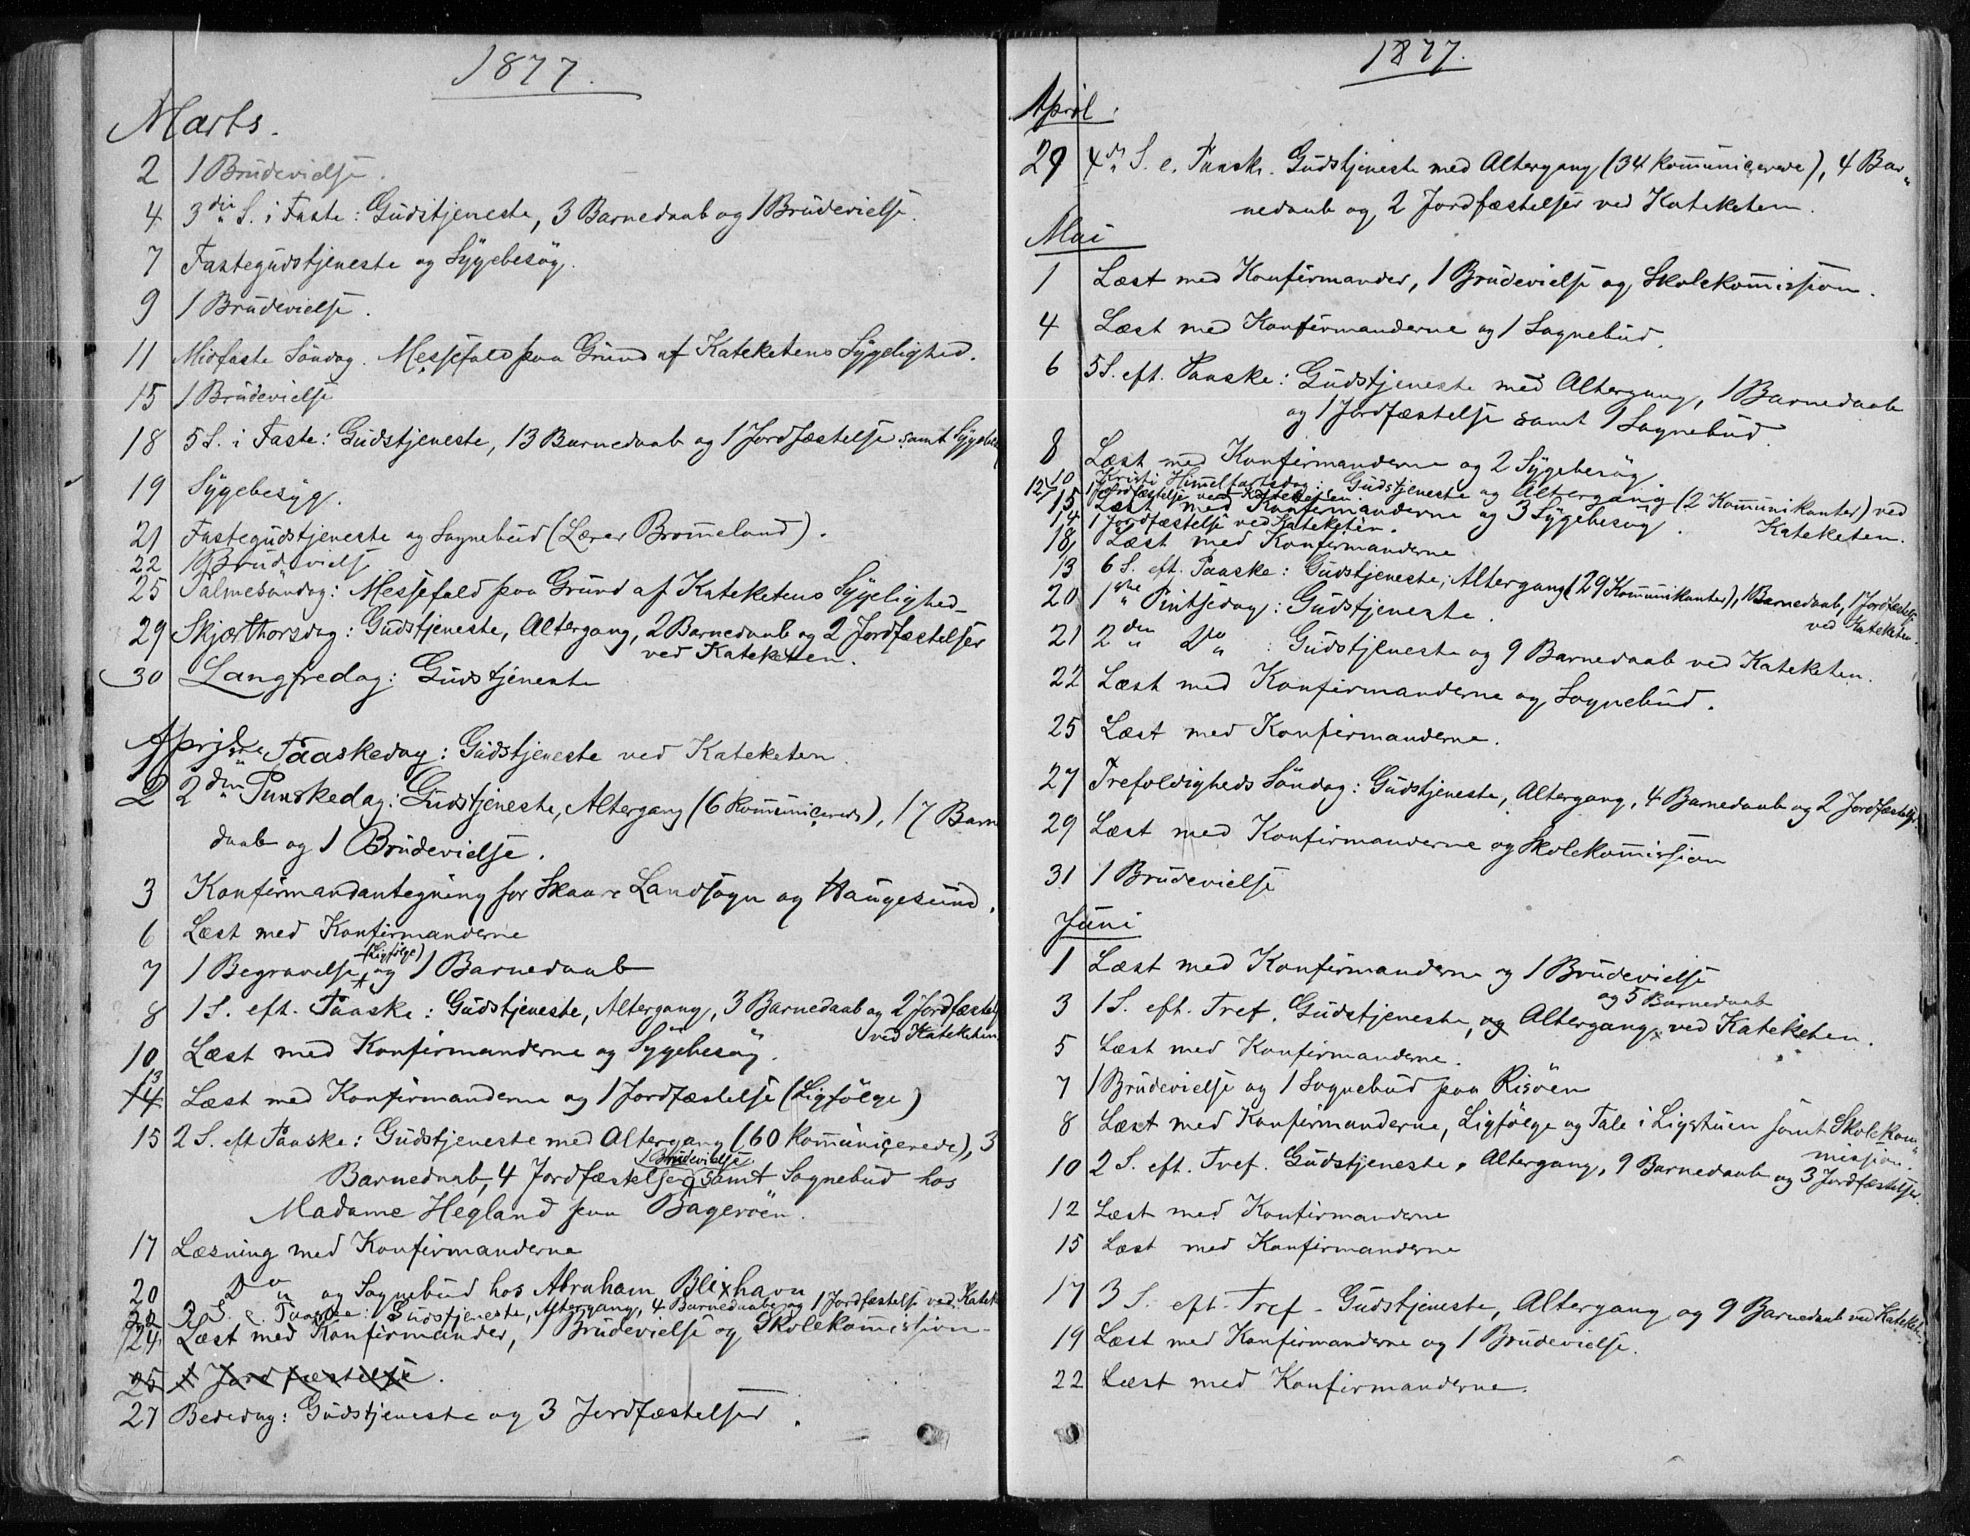 1877.
Marts.
2 1 Brudevielse.
4 3die S. i Faste: Gudstjeneste, 3 Barnedaab og 1 Brudevielse.
7 Fastegudstjeneste og Sygebesøg.
9 1 Brudevielse.
11 Midfaste Søndag. Messefald paa Grund af Kateketens Sygelighed.
15 1 Brudevielse
18 5 S. i Faste: Gudstjeneste, 13 Barnedaab og 1 Jordfæstelse samt Sygebes
19 Sygebesyg.
21 Fastegudstjeneste og Sognebud (Lærer Brommeland).
22 1 Brudevielse
25 Palmesøndag: Messefald paa Grund af Kateketens Sygelighed_
29 Skjærthorsdag: Gudstjeneste, Altergang, 2 Barnedaab og 2 Jordfæstelser
ved Kateketen.
30 Langfredag: Gudstjeneste
April
1ste Paaskedag: Gudstjeneste ved Kateketen.
2 2den Paaskedag: Gudstjeneste, Altergang (6 kommunicerede), 17 Barne
daab og 1 Brudevielse.
3 Konfirmandantegning for Skaare Landsogn og Haugesund.
6 Læst med Konfirmanderne
(Ligfølge)
7 1 Begravelse og 1 Barnedaab
8 1 S. eft. Paaske: Gudstjeneste, Altergang, 3 Barnedaab og 2 Jordfæstel
ved Kateketen
10 Læst med Konfirmanderne og Sygebesøg.
13
14 Læst med Konfirmanderne og 1 Jordfæstelse (Ligfølge)
15 2 S. eft Paaske: Gudstjeneste med Altergang (60 kommunicerede), 3
1 Brudevielse
Barnedaab, 4 Jordfæstelser samt Sognebud hos
Madame Hegland paa Bagerøen.
17 Læsning med Konfirmanderne
20 Do og Sognebud hos Abraham Blixhavn
22 3 S. e. Paaske: Gudstjeneste, Altergang, 4 Barnedaab og 1 Jordfæstelse ved Katek
24 Læst med Konfirmander, 1 Brudevielse og Skolekommission_
25 1 Jordfæstelse.
27 Bededag: Gudstjeneste og 3 Jordfæstelser.
1877.
April:
29 4de S. e. Paaske. Gudstjeneste med Altergang (34 kommunicerede), 4 Bar„
nedaab og 2 Jordfæstelser ved Kateketen.
Mai
1 Læst med Konfirmander, 1 Brudevielse og Skolekommission.
4 Læst med Konfirmanderne og 1 Sognebud.
6 5 S. eft. Paaske: Gudstjeneste med Altergang, 1 Barnedaab
og 1 Jordfæstelse samt 1 Sognebud.
8 Læst med Konfirmanderne og 2 Sygebesøg
10 Kristi Himmelfartsdag: Gudstjeneste og Altergang (2 Kommunikanter) ved
Kateketen.
12 1 Jordfæstelse ved Kateketen.
15 Læst med Konfirmanderne og 3 Sygebesøg.
14 1 Jordfæstelse ved Kateketen.
18 Læst med Konfirmanderne
13 6 S. eft. Paaske: Gudstjeneste, Altergang (29 Kommunikanter), 1 Barnedaab, 1 Jordfæstelse
ved Kateketen.
20 1ste Pintsedag: Gudstjeneste.
21 2den Do: Gudstjeneste og 9 Barnedaab ved Kateketen.
22 Læst med Konfirmanderne og Sognebud.
25 Læst med Konfirmanderne.
27 Trefoldigheds Søndag: Gudstjeneste, Altergang, 4 Barnedaab og 2 Jordfæstelser.
29 Læst med Konfirmanderne og Skolekommission
31 1 Brudevielse
Juni
1 Læst med Konfirmanderne og 1 Brudevielse
og 5 Barnedaab
3 1 S. eft. Tref. Gudstjeneste, og Altergang ved Kateketen.
5 Læst med Konfirmanderne.
7 1 Brudevielse og 1 Sognebud paa Risøen
8 Læst med Konfirmanderne, Ligfølge og Tale i Ligstuen samt Skolekom„
mission.
10 2 S. eft. Tref. Gudstjeneste, Altergang, 9 Barnedaab og 3 Jordfæstelser.
12 Læst med Konfirmanderne
15 Læst med Konfirmanderne
17 3 S. eft. Tref - Gudstjeneste, Altergang og 9 Barnedaab ved Kateketen.
19 Læst med Konfirmanderne og 1 Brudevielse.
22 Læst med Konfirmanderne.